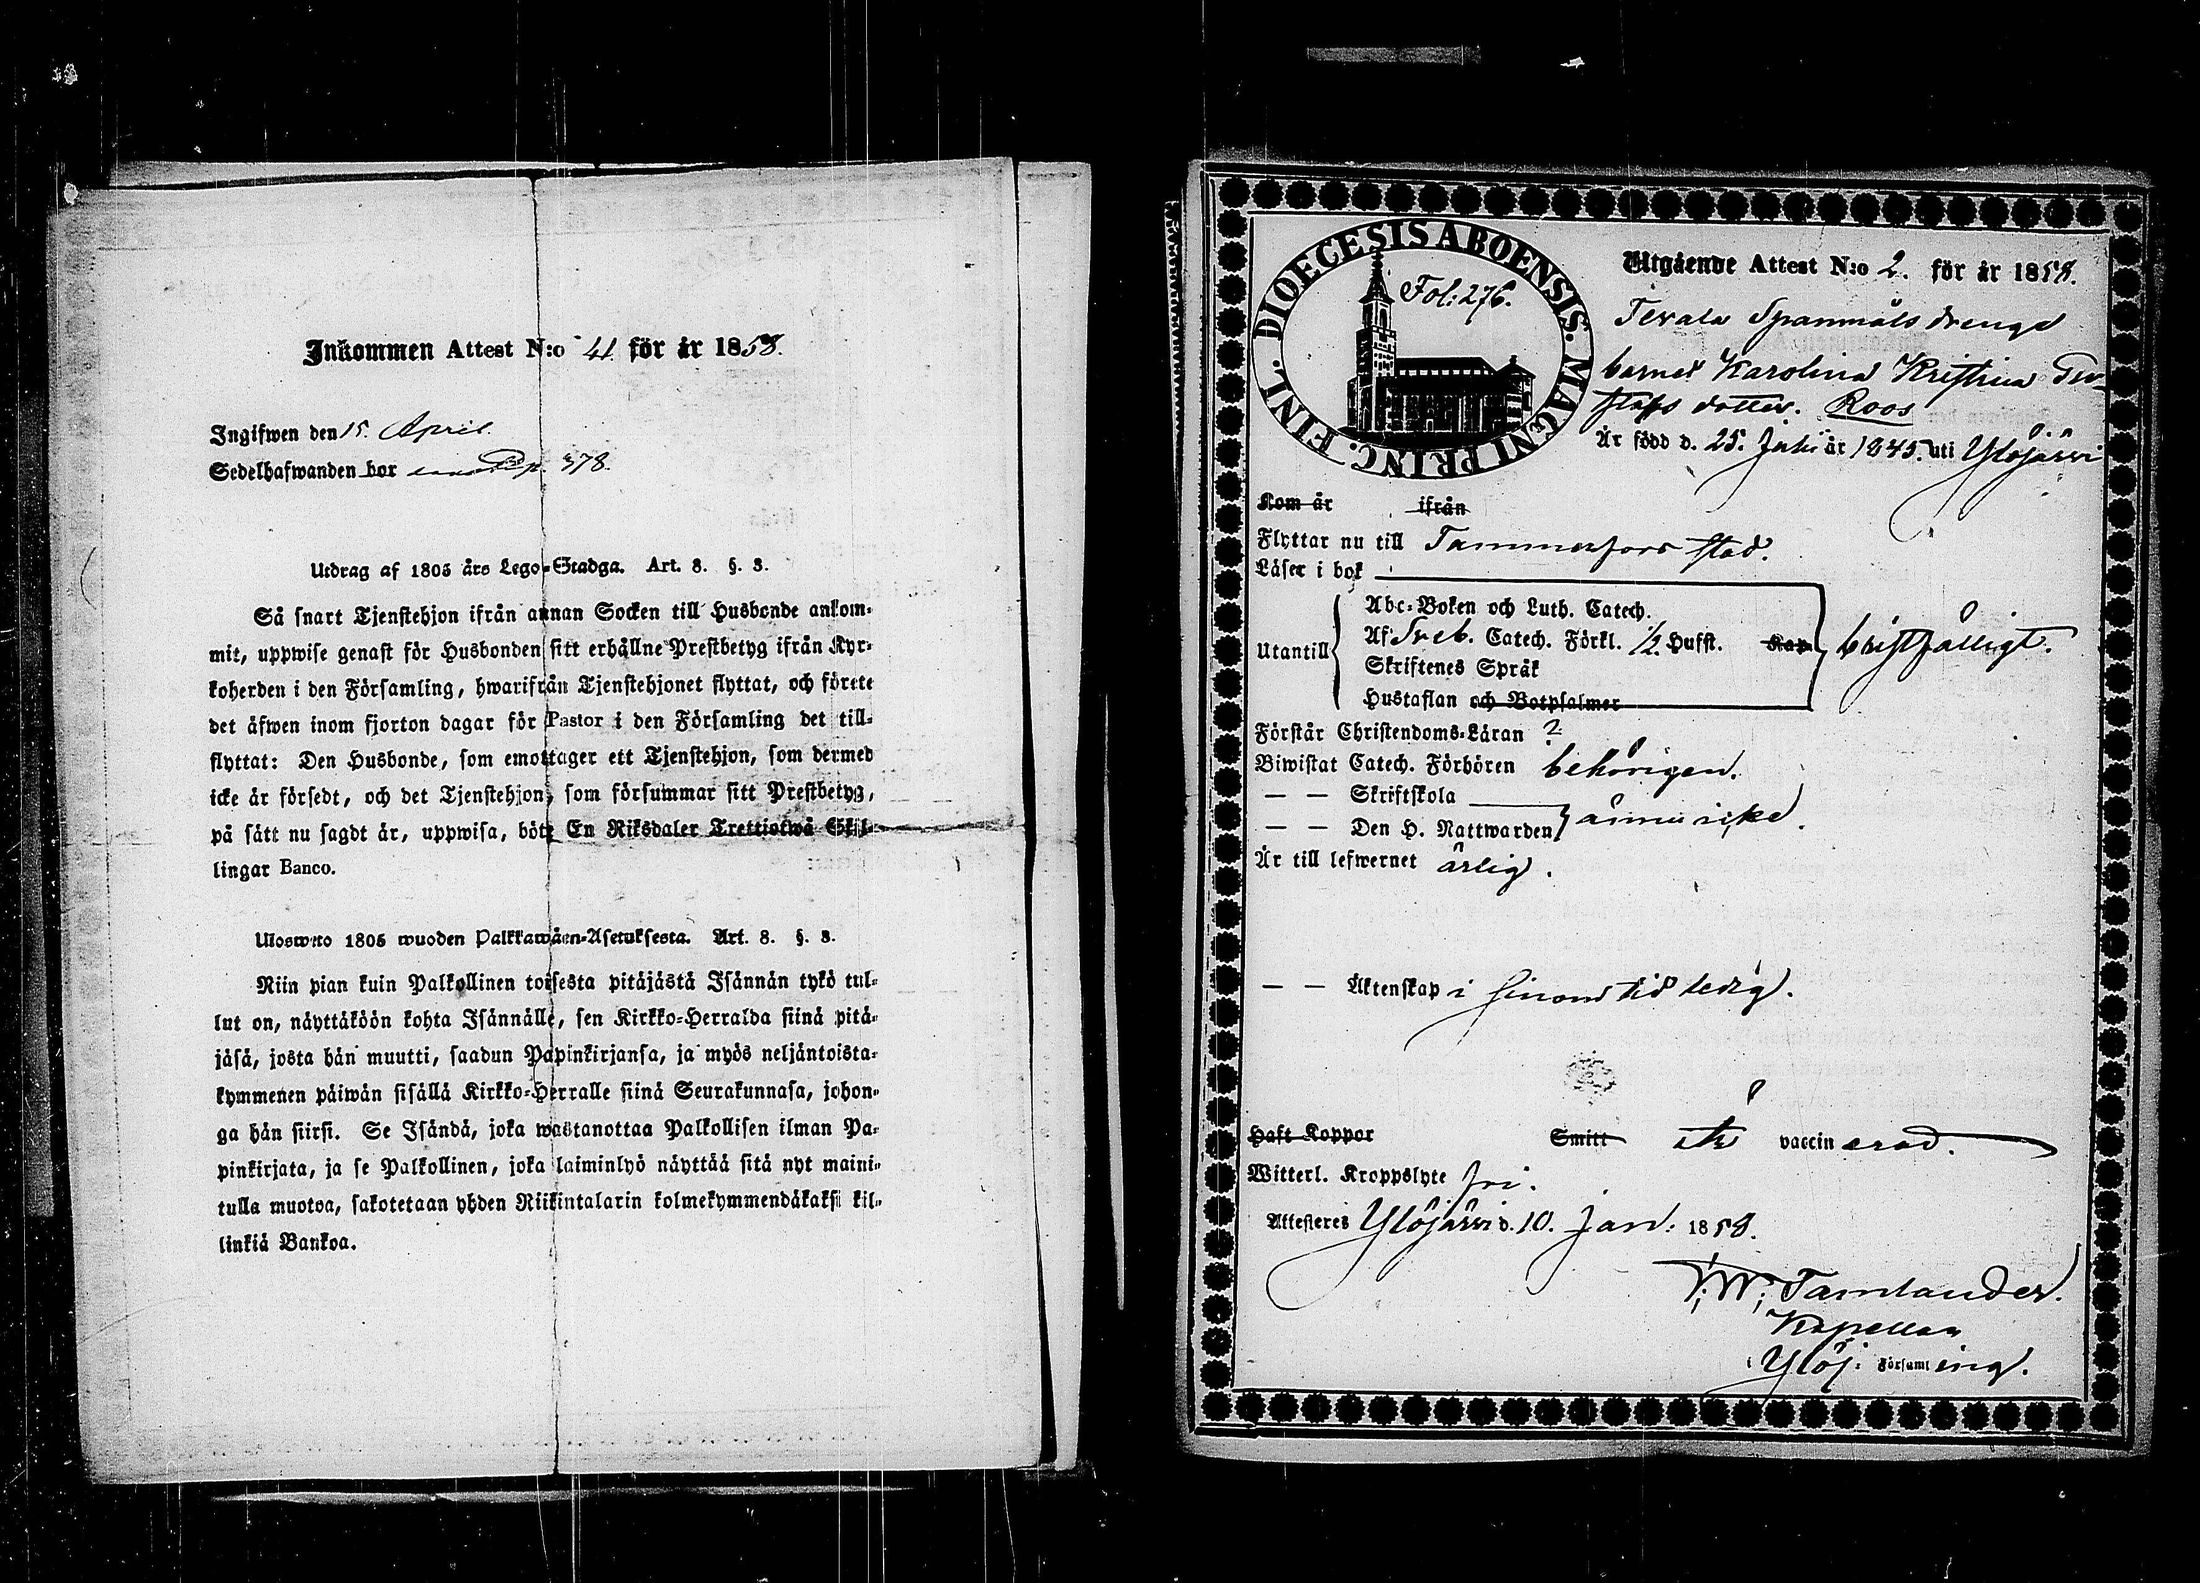 Inkommen Attest N:o 41 för år 1858.
Ingifwen den 15. April.
Sedelhafwanden bor p. 378.
Utdrag af 1805 års Lego-Stadga. Art. 8. §. 3.
Så snart Tjenstehjon ifrån annan Socken till Husbonde ankom-
mit, uppwise genast för Husbonden sitt erhållne Prestbetyg ifrån Kyr-
koherden i den Församling, hwarifrån Tjenstehjonet flyttat, och förete
det äfwen inom fjorton dagar för Pastor i den Församling det till-
flyttat: Den Husbonde, som emottager ett Tjenstehjon, som dermed
icke är försedt, och det Tjenstehjon, som försummar sitt Prestbetyg,
på sätt nu sagdt är, uppwisa, böte En Riksdaler Trettiotwå Skil-
lingar Banco.
Ulosweto 1805 wuoden Palkkawäen-Asetuksesta. Art. 8. §. 3.
Niin pian kuin Palkollinen toisesta pitäjästä Isännän tykö tul-
lut on, näyttäköön kohta Isännälle, sen Kirkko-Herralda siinä pitä-
jäsä, josta hän muutti, saadun Papinkirjansa, ja myös neljäntoista-
kymmenen päiwän sisällä Kirkko-Herralle siinä Seurakunnasa, johon-
ga hän siirsi. Se Isändä, joka wastanottaa Palkollisen ilman Pa-
pinkirjata, ja se Palkollinen, joka laiminlyö näyttää sitä nyt maini-
tulla muotoa, sakotetaan yhden Riikintalarin kolmekymmendäkaksi kil-
linkiä Bankoa.
DIOECESIS ABOENSIS. MAGNI PRINC. FINL.
Fol: 276.
Utgående Attest N:o 2. för år 1858.
Spanmåls drenge
barnet Karolina Kristina Gu-
stafs dotter. Roos
Är född d. 25. Juli år 1845. uti Ylöjärvi
Kom år ifrån
Flyttar nu till Tammerfors stad.
Läser i bok
Utantill
Abc-Boken och Luth. Catech.
Af Sveb. Catech. Förkl. 1/2. Hufst. Kap
Skriftenes Språk
Hustaflan och Botpsalmer
bristfälligt.
Förstår Christendoms-Läran ?
Biwistat Catech. Förhören behörigen.
— — Skriftskola
— — Den H. Nattwarden
ännu icke.
Är till lefwernet ärlig.
— — Äktenskap i sinom tid ledig.
Haft Koppor Smitt vaccinerad.
Witterl. Kroppslyte fri.
Attesteres Ylöjärvi d. 10. Jan. 1858.
Tamlander.
Kapellan
i Ylöj: Församling.